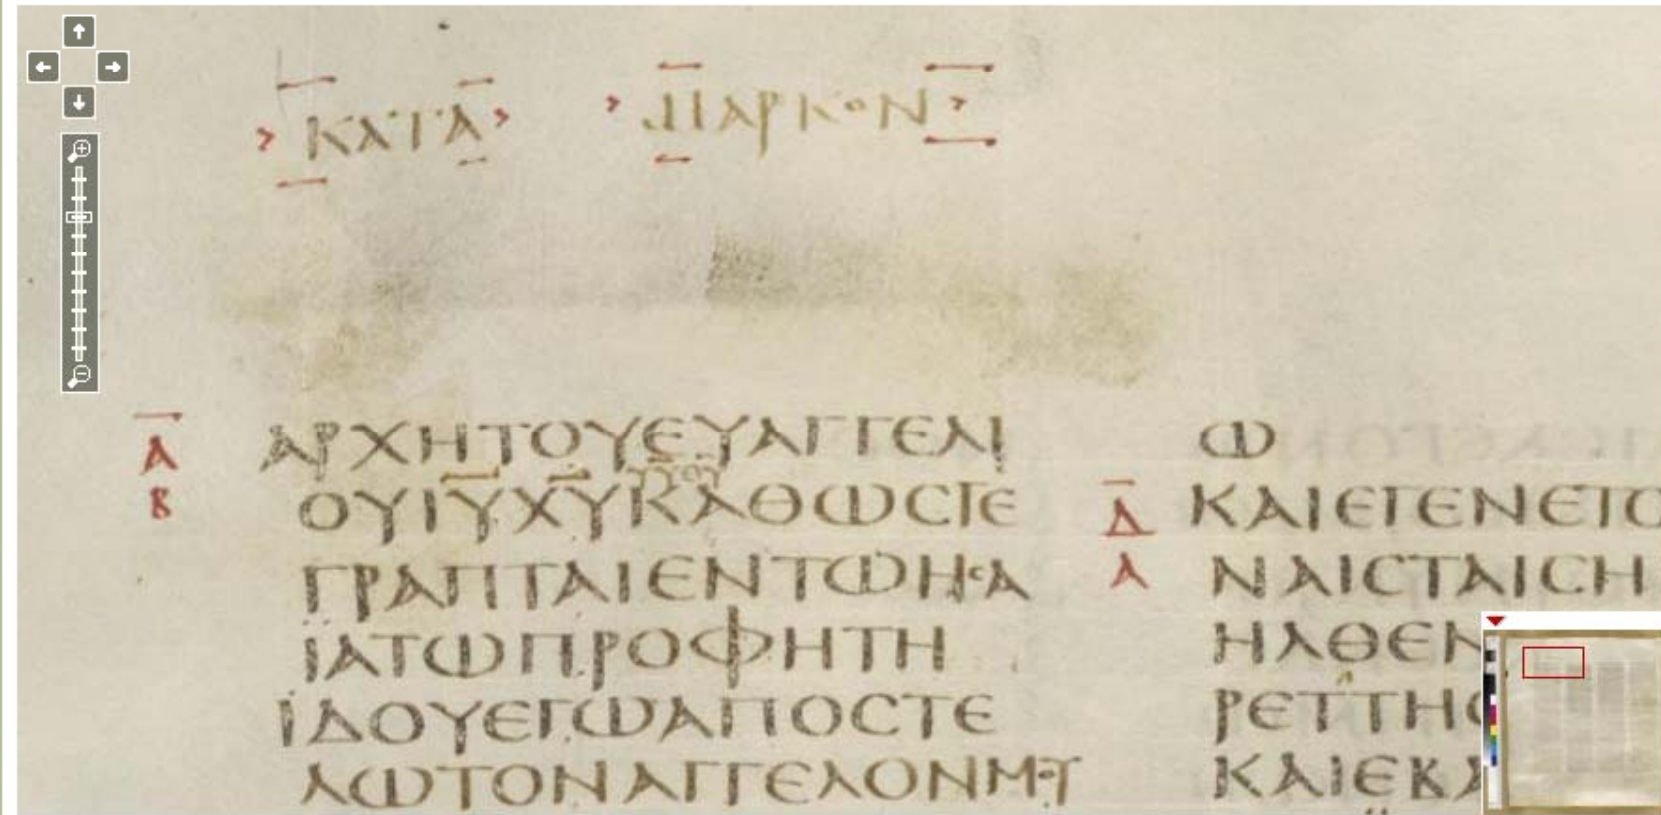 ΚΑΤΑ ΜΑΡΚΟΝ
Α
Β
ΑΡΧΗΤΟΥΕΥΑΓΓΕΛΙ
ΟΥΙΥΧΥΚΑΘΩϹΓΕ
ΓΡΑΠΤΑΙΕΝΤΩΗϹΑ
ΪΑΤΩΠΡΟΦΗΤΗ
ΪΔΟΥΕΓΩΑΠΟϹΤΕ
ΛΩΤΟΝΑΓΓΕΛΟΝΜΟΥ
Δ
Α
Ω
ΚΑΙΕΓΕΝΕΤΟ
ΝΑΙϹΤΑΙϹΗ
ΗΛΘΕΝ
ΡΕΤΤΗϹ
ΚΑΙΕΒΑ